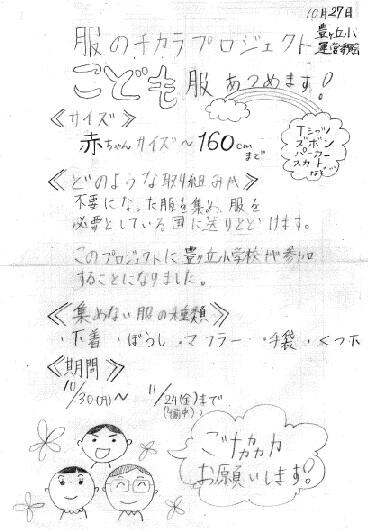 10月27日
豊ヶ丘小
運営委員会
服のチカラプロジェクト
こども服あつめます!
《サイズ》
赤ちゃんサイズ〜160cmまで
Tシャツ
ズボン
パーカー
スカート
など…
《どのような取り組みか》
不要になった服を集め、服を
必要としている国に送りとどけます。
このプロジェクトに豊ヶ丘小学校が参加
することになりました。
《集めない服の種類》
・下着 ・ぼうし ・マフラー ・手袋 ・くつ下
《期間》
10/30(月)〜 11/24(金)まで
ご協力
お願いします!